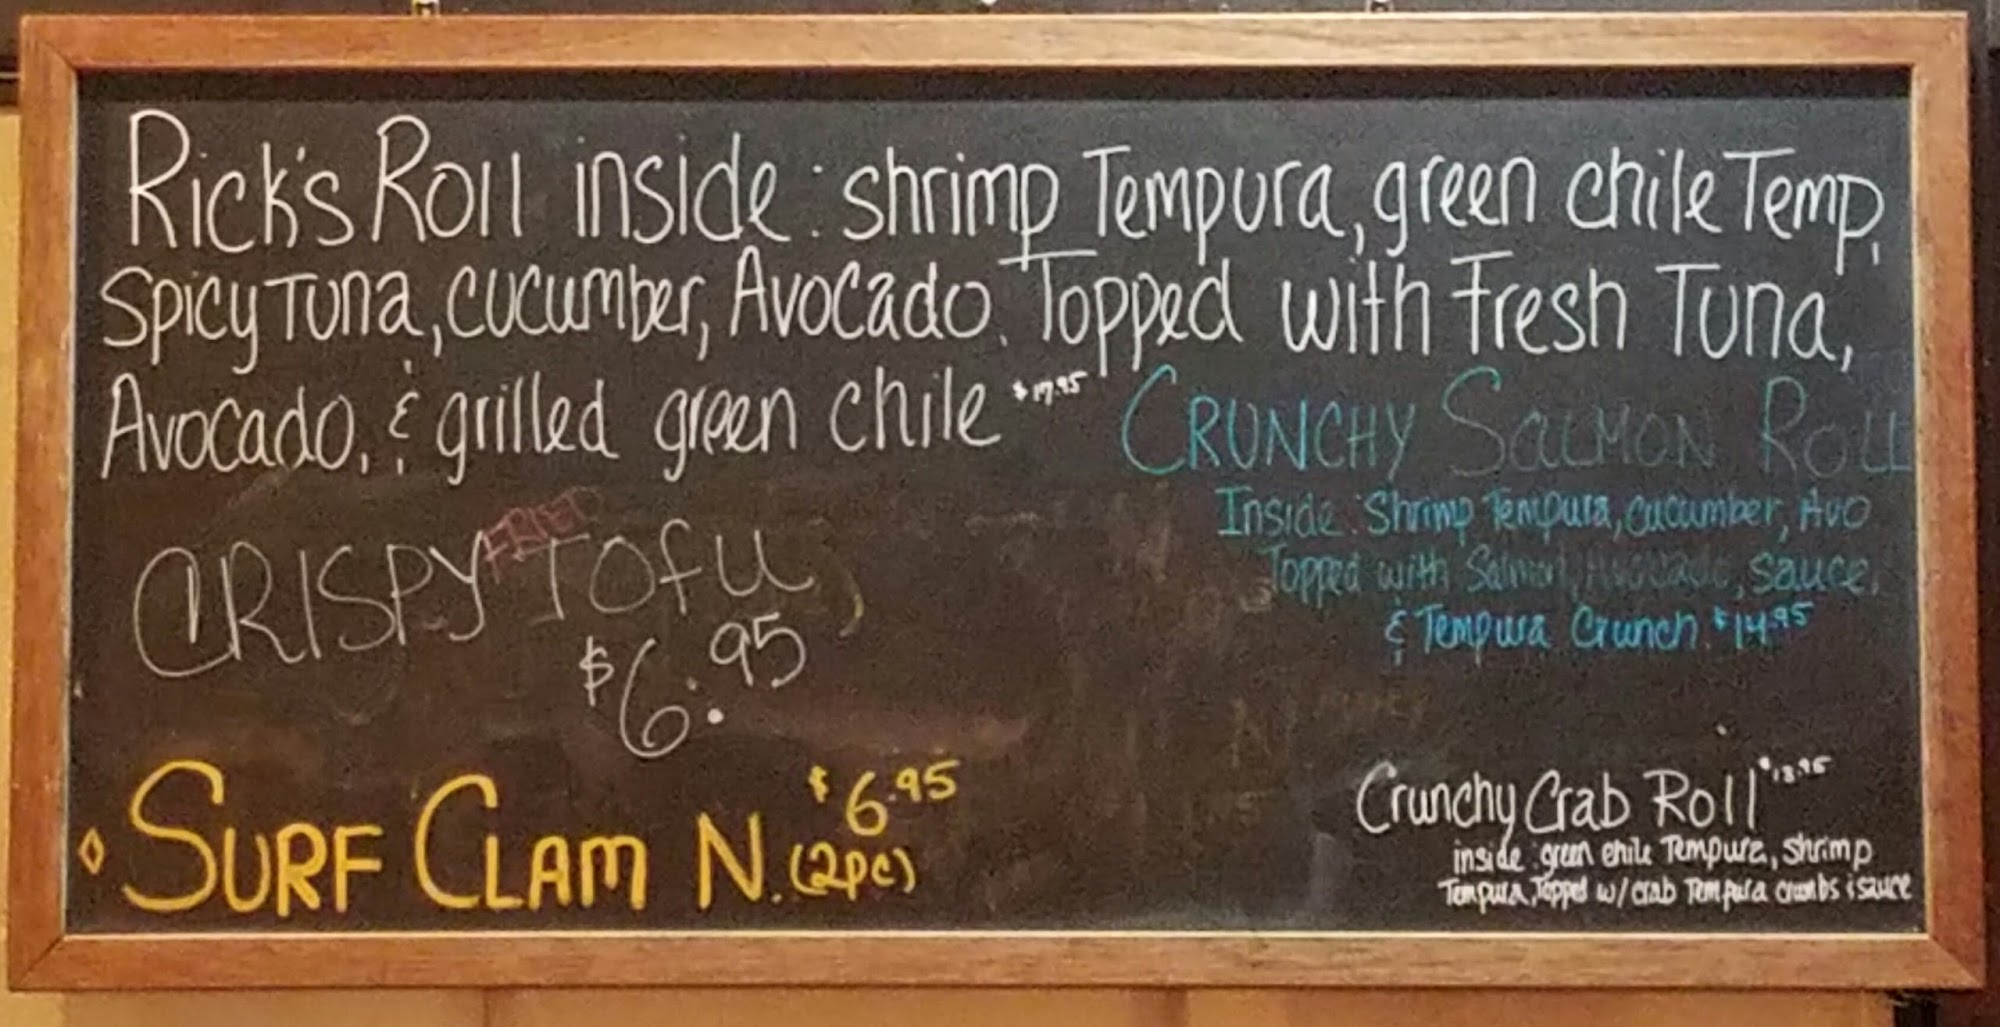 Rick's Roll inside: shrimp Tempura, green chile Temp,
Spicy Tuna, cucumber, Avocado. Topped with Fresh Tuna,
Avocado, & grilled green chile $17.95
CRUNCHY SALMON ROLL
Inside: Shrimp Tempura, cucumber, Avo
Topped with Salmon, Avocado, sauce,
& Tempura Crunch $14.95
CRISPY FRIED TOFU
$6.95
SURF CLAM N. (2pc) $6.95
Crunchy Crab Roll $13.95
inside: green chile Tempura, shrimp
Tempura, Topped w/ crab Tempura crumbs & sauce